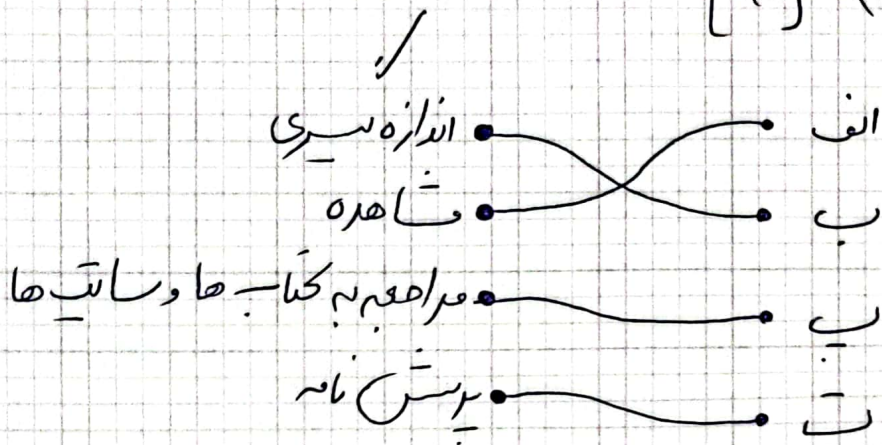 الف اندازه گیری
ب مشاهده
پ مراجعه به کتاب ها و سایت ها
ت پرسش نامه